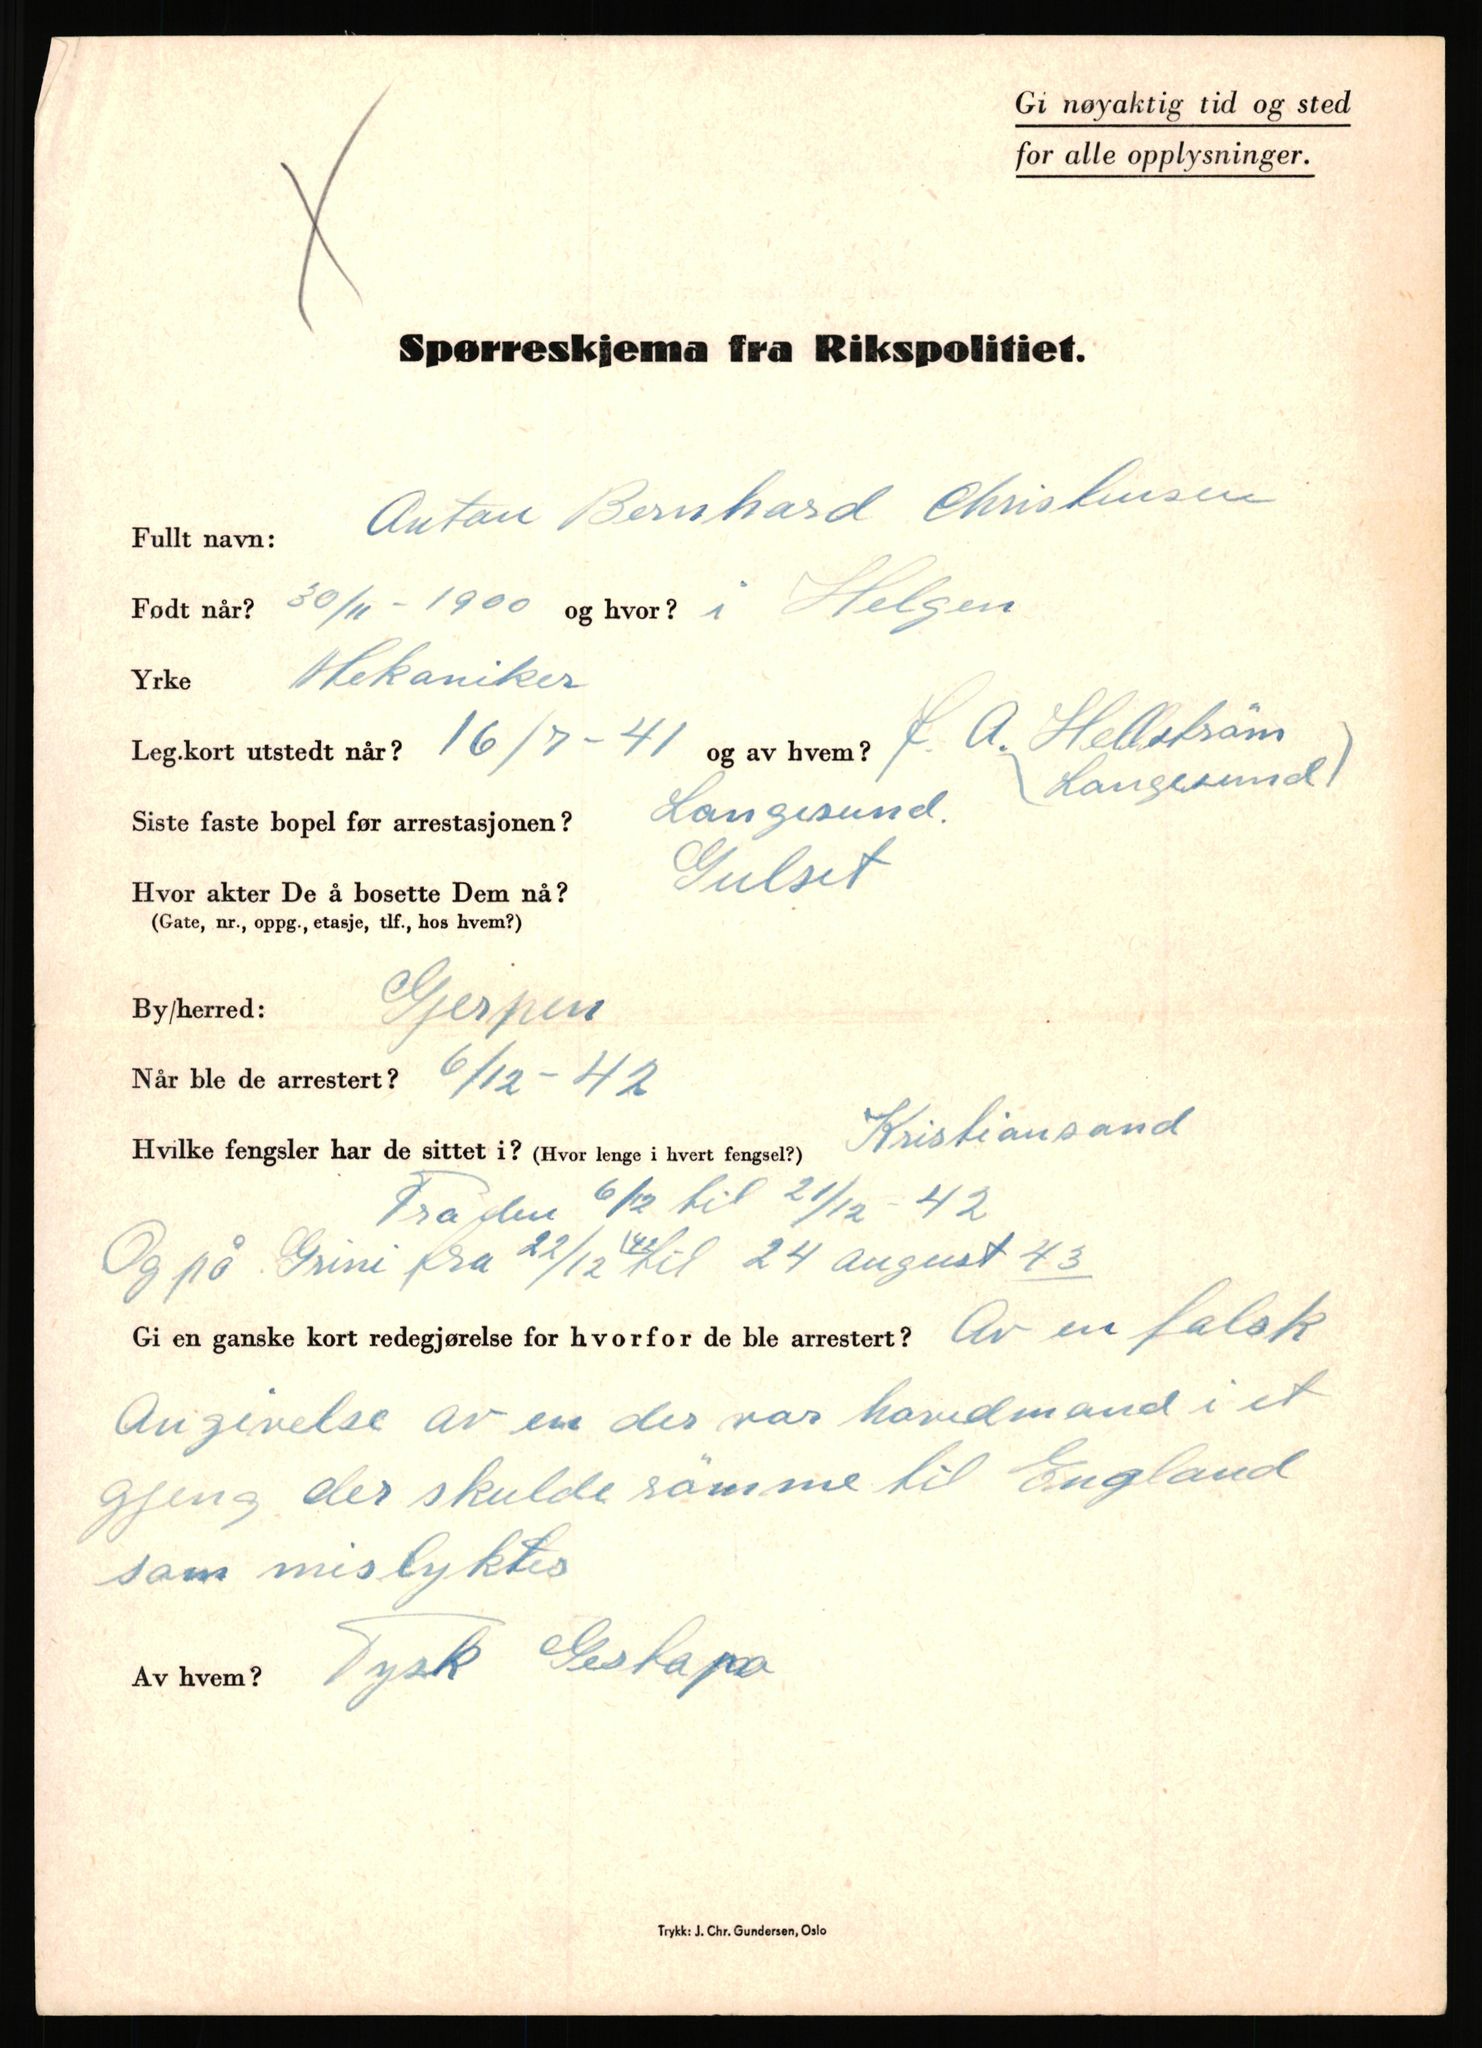 Gi nøyaktig tid og sted
for alle opplysninger.
Spørreskjema fra Rikspolitiet.
Fullt navn: Anton Bernhard Christensen
Født når? 30/11 - 1900 og hvor? i Helgen
Yrke Mekaniker
Leg.kort utstedt når? 16/7 - 41 og av hvem? A. Hellström
(Langesund)
Siste faste bopel før arrestasjonen? Langesund.
Hvor akter De å bosette Dem nå? Gulset
(Gate, nr., oppg., etasje, tlf., hos hvem?)
By/herred: Gjerpen
Når ble de arrestert? 6/12 - 42
Hvilke fengsler har de sittet i? (Hvor lenge i hvert fengsel?) Kristiansand
Fra den 6/12 til 21/12 - 42
Og på Grini fra 22/12 '42 til 24 august 43
Gi en ganske kort redegjørelse for hvorfor de ble arrestert? Av en falsk
Angivelse av en der var hovedmand i et
gjeng der skulde römme til England
som mislyktes
Av hvem? Tysk Gestapo
Trykk: J. Chr. Gundersen, Oslo